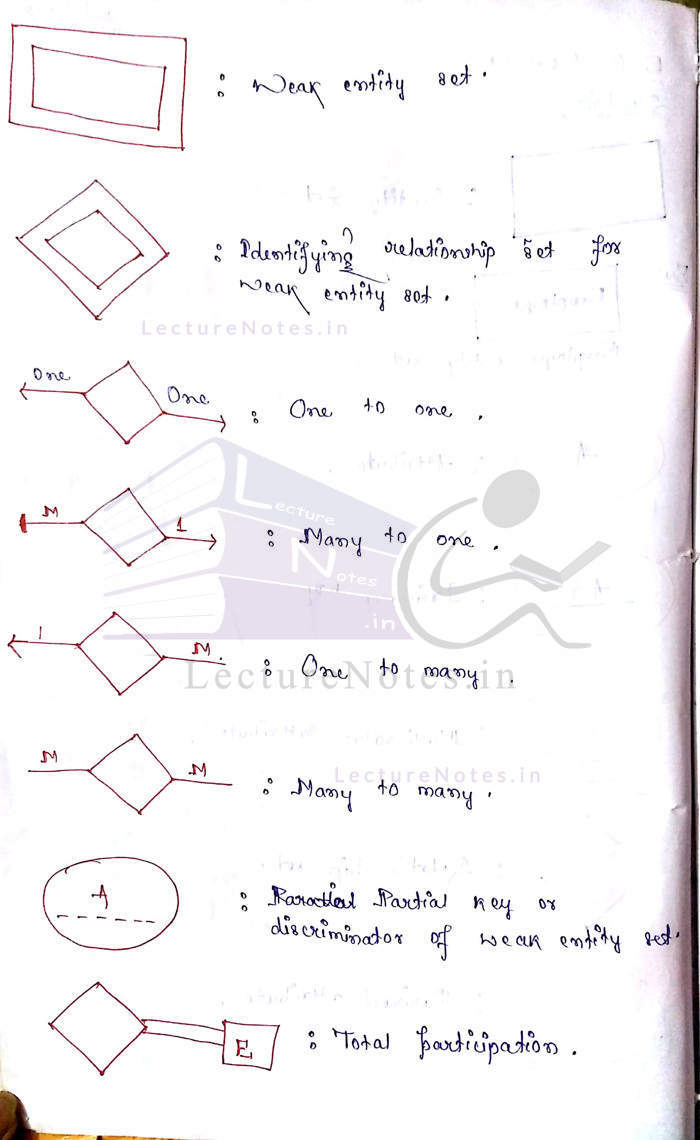 : Weak entity set.
: Identifying relationship set for
weak entity set.
LectureNotes.in
One
One
: One to one .
M
1
: Many to one .
Lecture
Notes
.in
1
M.
: One to many .
LectureNotes.in
M
M
LectureNotes.in
: Many to many .
A
: Partial key or
discriminator of weak entity set.
E
: Total participation .